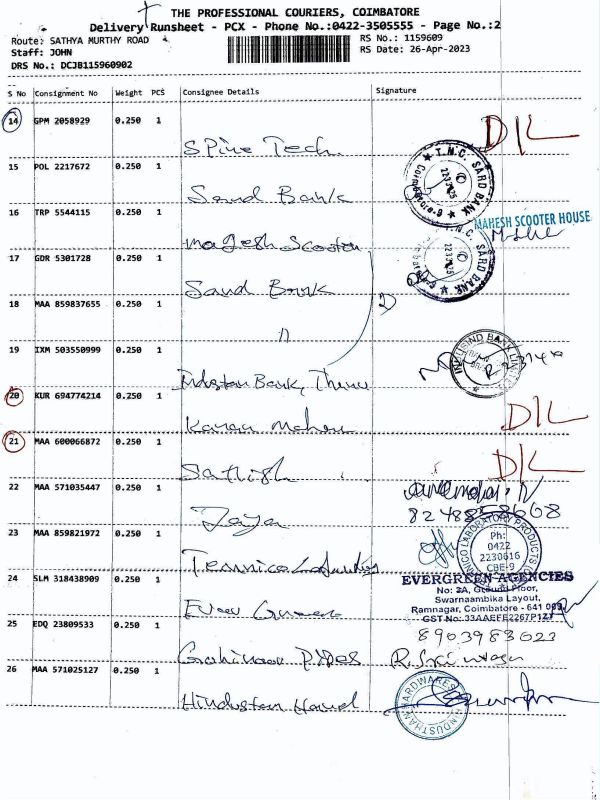 THE PROFESSIONAL COURIERS, COIMBATORE
Delivery Runsheet - PCX - Phone No.:0422-3505555 - Page No.:2
Route: SATHYA MURTHY ROAD
RS No.: 1159609
Staff: JOHN
RS Date: 26-Apr-2023
DRS No.: DCJB115960902
S No Consignment No Weight PCS Consignee Details Signature
14 GPM 2058929 0.250 1
Spine Tech D/L
15 POL 2217672 0.250 1
Sard Bank T.N.C. SARD BANK
16 TRP 5544115 0.250 1
MAHESH SCOOTER HOUSE
Magesh Scooter
17 GDR 5301728 0.250 1
Sard Bank T.N.C. SARD BANK
18 MAA 859837655 0.250 1
"
19 IXM 503550999 0.250 1
INDUSIND BANK LIMITED
Bank,
20 KUR 694774214 0.250 1
D/L
21 MAA 600066872 0.250 1
Sathish D/L
22 MAA 571035447 0.250 1
Jaya 8248858608
23 MAA 859821972 0.250 1
LABORATORY PRODUCTS
Ph:
0422
2230616
CBE-9
24 SLM 318438909 0.250 1
EVERGREEN AGENCIES
No: 3A, Ground Floor,
Swarnaambika Layout,
Ramnagar, Coimbatore - 641 009
GST No: 33AAEFE2267P1Z7
25 EDQ 23809533 0.250 1
8903983023
Pipes R. Srinivasan
26 MAA 571025127 0.250 1
Hindustan HARDWARES